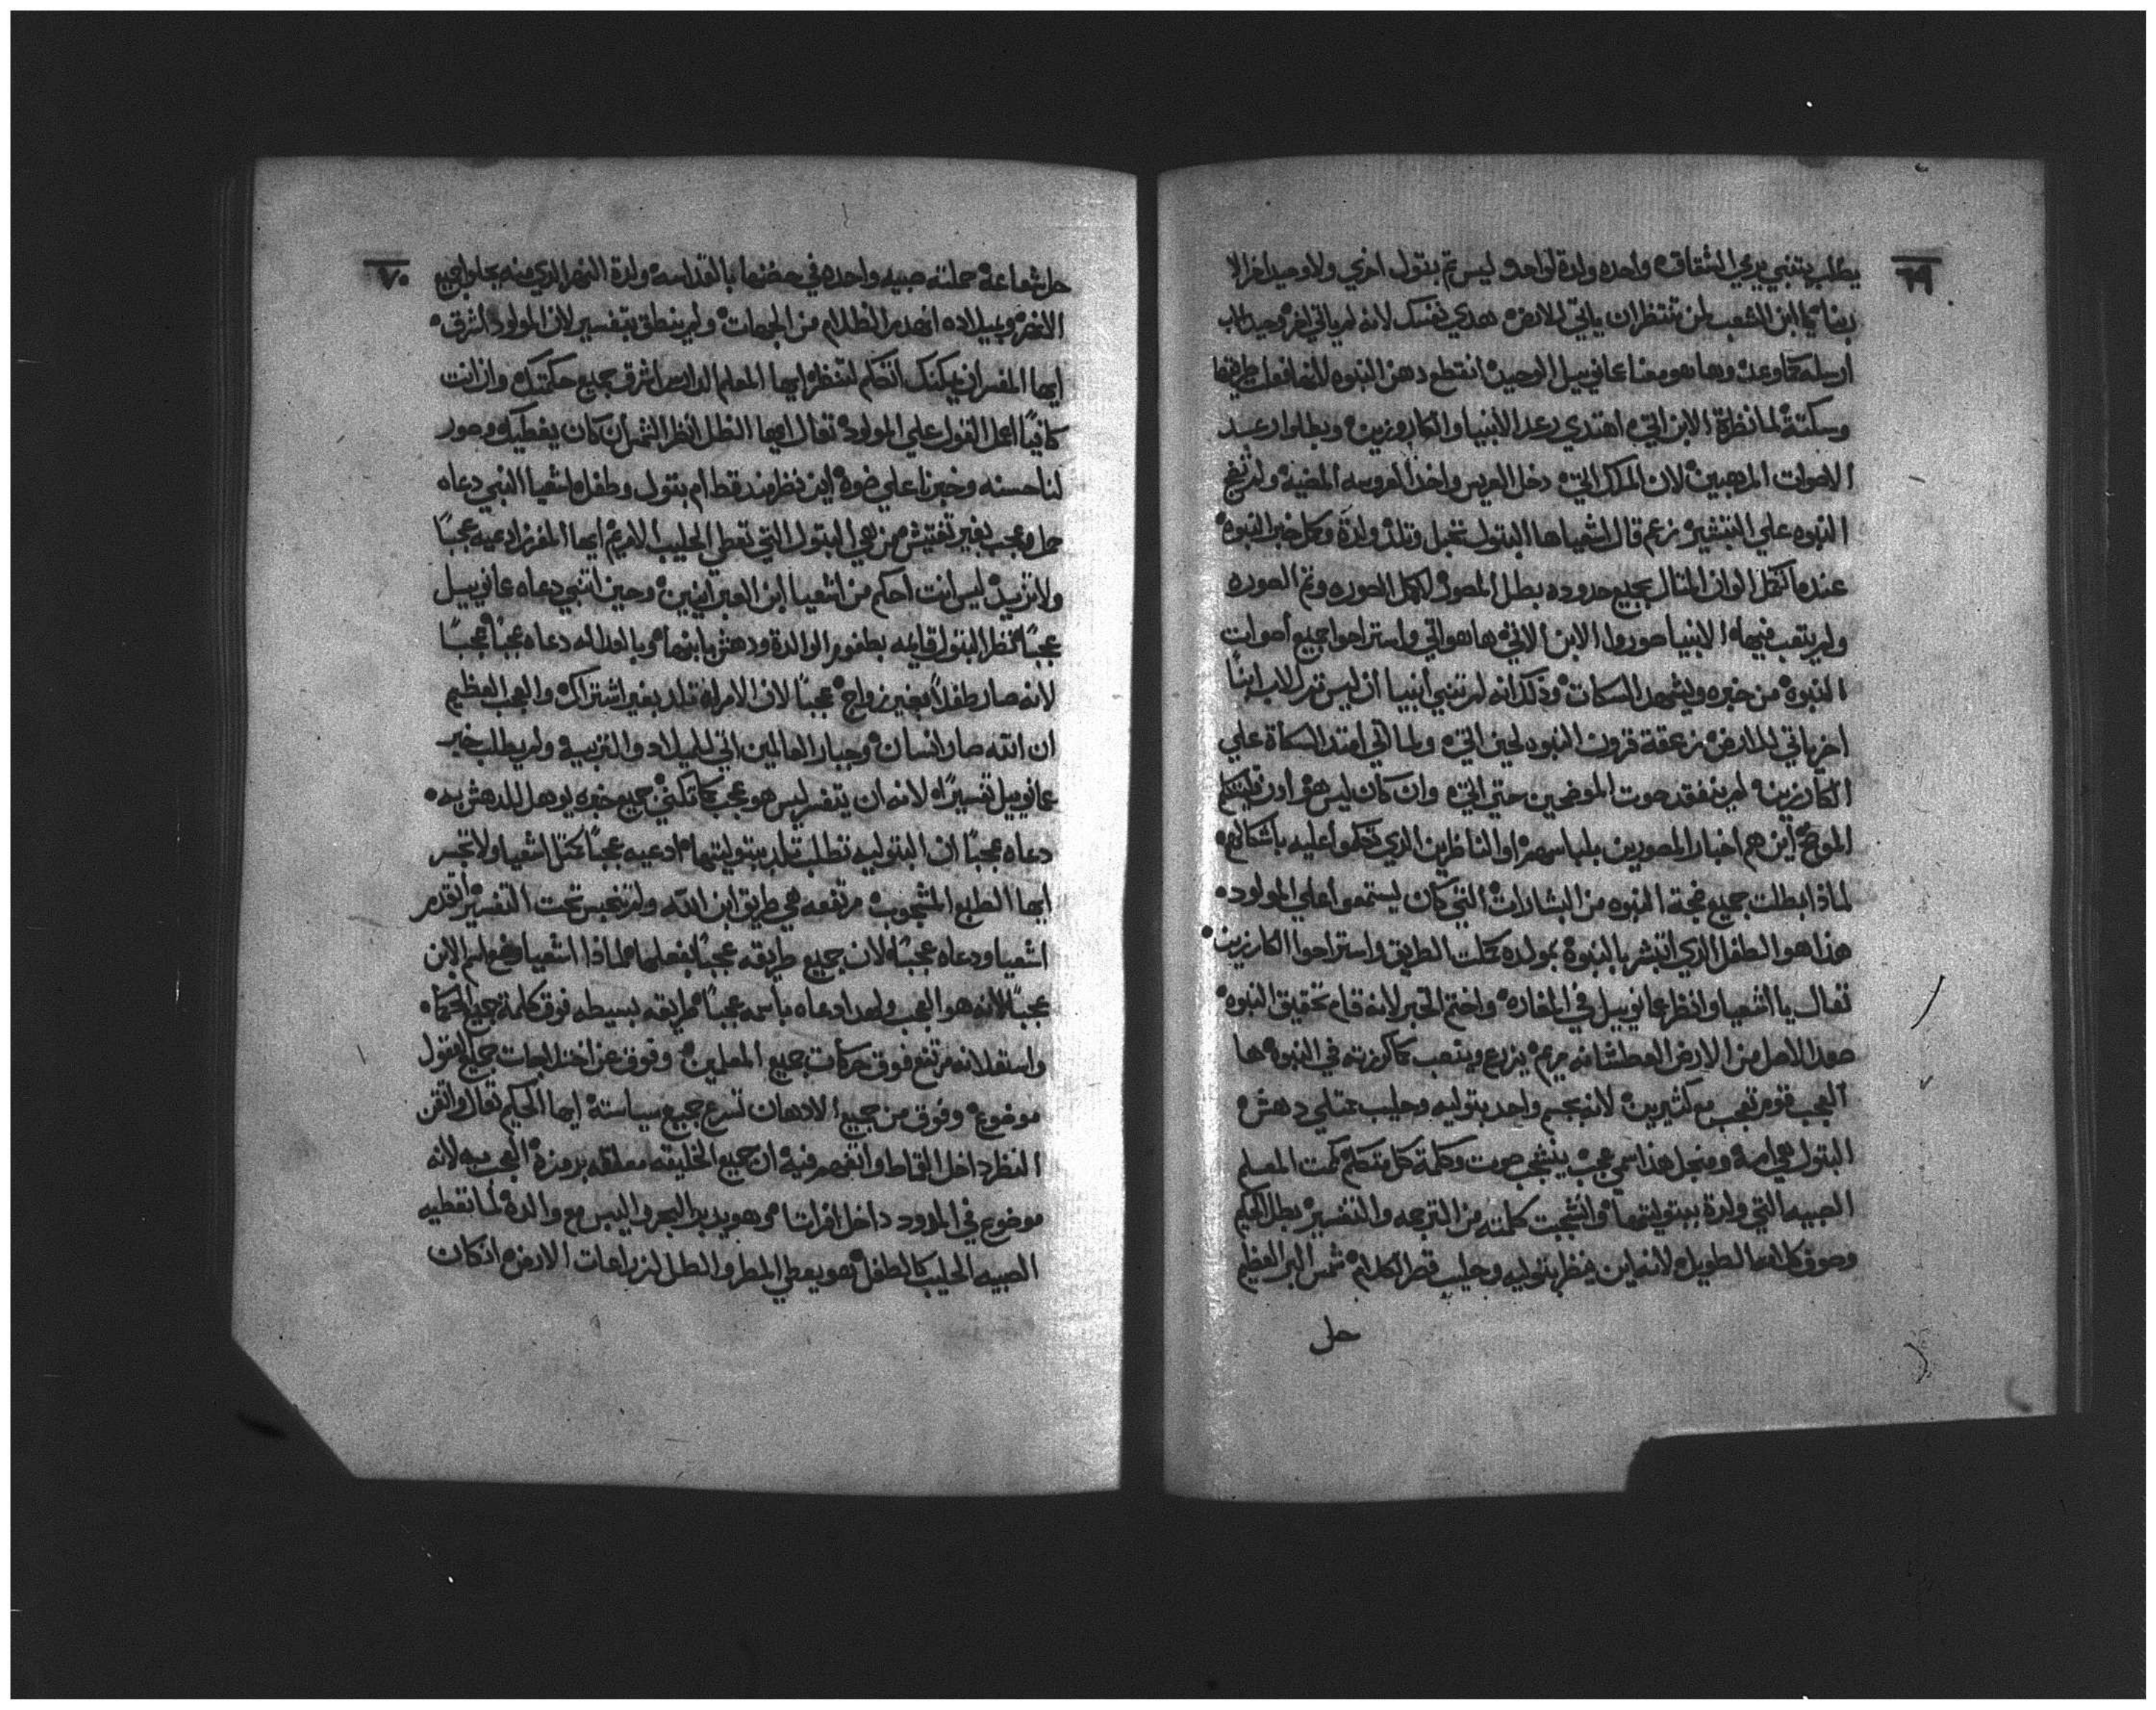 ٦٩
يطلب يتنبي يري الشقاق واحده ولدة لواحد وليس ثم بتول اخري ولا وحيد اخر الا
ربنا يا ابن الشعب لمن تنتظر ان ياتي للارض هدي نفسك لانه لم ياتي اخر وحيد الاب
ارسله كما وعد وها هو معنا عمانوييل الوحيد انقطع دهن النبوه
وسكتة لمناظرة الابن اتي اهتدي رعد الانبيا والكاروزين وبطلوا رعد
الاصوات المرهبين لان الملك اتي دخل العريس واخذ العروسه المضيه ولم تضج
النبوه علي التبشير زعم قال اشعيا ها البتول تحبل وتلد ولدة وكمل خبر النبوة
عنده اكمل الوان المثال بجميع حدوده بطل المصور اكمل الصوره وتم الصوره
ولم يتعب فيها الانبيا صوروا الابن الاتي ها هو اتي واستراحوا جميع اصوات
النبوة من خبره ويشهد السكات وذلك انه لم تنبي انبيا ان ليس تم للاب ابنا
اخر ياتي للارض زعقة قرون النبوه لحين اتي ولما اتي امتد السكاة علي
الكارزين لم ينفقد صوت الموضحين حتي اتي وان كان ليس هو اورد قلبكم
الموضح اين هم اخبار المصورين بلباسهم او الناظرين الذي تحكموا عليه باشكالهم
لماذا بطلت جميع ضجة النبوه من البشارات التي كان يستمعوا علي المولود
هذا هو الطفل الذي اتبشر بالنبوة بمولده كملت الطريق واستراحوا الكارزين
تعال يا اشعيا وانظر عمانوييل في المغاره واختم الخبر لانه قام تحقيق النبوه
صعد الاصل من الارض العطشانه مريم يزرع ويتعب كما كرزته في النبوة ها
العجب قوم تعجب مع كثيرين لانه بجسم واحد بتوليه وحليب تمتلي دهش
البتول هي امه ومنجل هذا سمي عجب ينشجب صوت وكلمة كل متكلم كمت المعلم
الصبيه التي ولدة ببتوليتها وانشجبت كلمته من الترجمه والتفسير بطل الحكيم
وصوف كلامه الطويل لانه اين ينظر بتوليه وحليب قصر الكلام شمس البر العظيم
حل
٧٠
حل شعاعة حملته صبيه واحده في حضنها بالقداسه ولدة النهر الذي منه يحلوا جميع
الانهر وبميلاده انهدم الظلام من الجهات ولم ينطق بتفسير لان المولود اشرق
ايها المفسر ان يمكنك اتكلم انتظر ايها المعلم الدارس اشرق جميع حكمتك وان انت
كافيا اعمل القول علي المولود تعال ايها الظل انظر الشمس ان كان يغطيك وصور
لنا حسنه وخبرنا علي ضوه اين نظر مند قط ام بتول وطفل اشعيا النبي دعاه
حل وعجب بغير تفتيش من هي البتول التي تعطي الحليب الام ايها المفرز ادعيه عجبا
ولا تزيد ليس انت احكم من اشعيا ابن العبرانيين وحين اتنبي دعاه عمانوييل
عجبا نظر البتول قايمه بطفور الوالدة ودهش بابنها وبالعداله دعاه عجبا عجبا
لانه صار طفلا بغير زواج عجبا لان الامراه تلد بغير اشتراك والعجب العظيم
ان الله صار انسان وجبار العالمين اتي للميلاد والتربيه ولم يطلب خبر
عمانوييل تفسيرا لانه ان يتفسر ليس هو عجب كما تكني جميع خبره يوهل للدهش به
دعاه عجبا ان البتوليه تطلب تلد ببتوليتها ادعيه عجبا كمثل اشعيا ولا تجسر
ايها الطبع المشجوب مرتفعه هي طريق ابن الله ولم تنحبس تحت التفسير اتقدم
اشعيا ودعاه عجبا لان جميع طريقه عجبا بفعلها لماذا اشعيا وضع اسم الابن
عجبا لانه هو العجب ولهدا دعاه باسمه عجبا طريقه بسيطه فوق كلمة جميع الحكماه
واستعلانه مرتفع فوق حركات جميع المعلمين وفوق عن اختلاجات جميع العقول
موضوع وفوق من جميع الادهان تسرع جميع سياسته ايها الحكيم تعال واتقن
النظر داخل القماط واتفهم فيه ان جميع الخليقه معلقه برمزة العجب به لانه
موضوع في المدود داخل افراتا وهو يدبر البحر والييس مع والدة لما تعطيه
الصبيه الحليب كالطفل هو يعطي المطر والطل لزراعات الارض ان كان